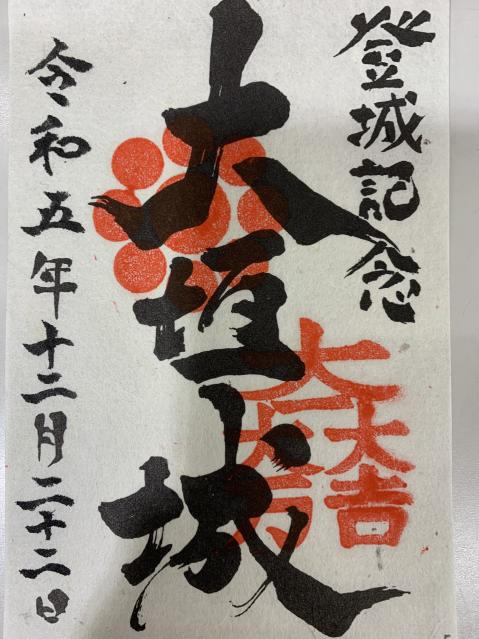 登城記念
大垣城
大一大万大吉
令和五年十二月二十二日